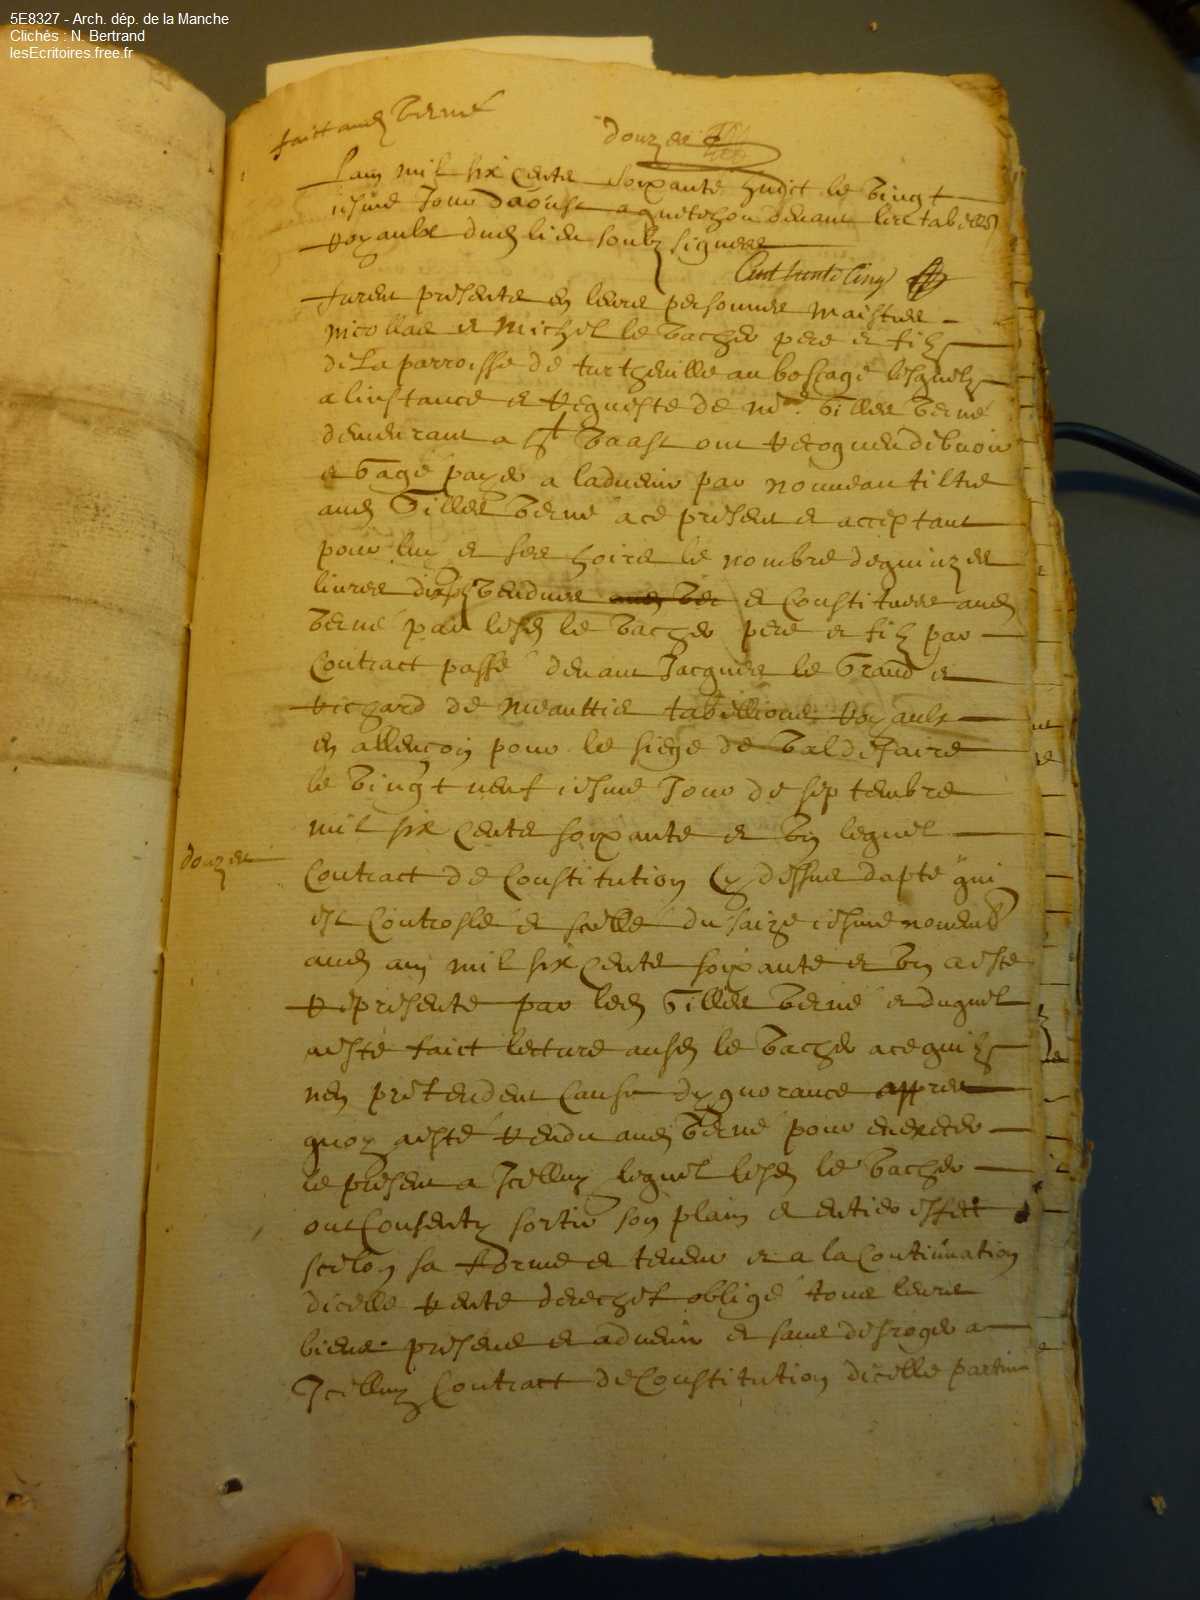 5E8327 - Arch. dép. de la Manche
Clichés : N. Bertrand
lesEcritoires.free.fr
faict aud Verné
douzes
Lan mil six cents soixante huict le vingt
iesme Jour daoust a quetehou devant les tabell
Royaulx dud lieu soubz signees
Cent trente Cinq
furent presents en leurs personnes Maistres
Nicollas et Michel le Vacher pere et filz
de La parroisse de turtheville au boscage lesquelz
a linstance et Requeste de Me Gilles Verné
demeurant a St Vaast ont Recogneu debvoir
et Gagé payer a ladvenir par nouveau tiltre
aud Gilles Verné a ce present et acceptant
pour luy et ses hoirs le nombre de quinzes
livres vendues aud Ver et Constituees aud
Verné par lesd le Vacher pere et filz par
Contract passé devant Jacques le Grand et
Richard de Meauttis tabellions Royaulx
en allençon pour le siege de Valdesaire
le vingt neuf iesme Jour de septembre
mil six cents soixante et un lequel
douzes
Contract de Constitution Cy dessus dapté qui
est Controslé et scellé du saize iesme novemb
aud an mil six cents soixante et un a esté
Represente par led Gilles Verné et duquel
a esté faict lecture ausd le Vacher a ce quilz
nen pretendent Cause dygnorance appres
quoy a esté Rendu aud Verné pour en exceder
le present a Icelluy lequel lesd le Vacher
ont Consenty sortir son plain et entier effect
scelon sa forme et teneur et a la Continuation
dicelle Rente derechef obligé tous leurs
biens presens et advenir et sans desroger a
Icelluy Contract de Constitution dicelle partie